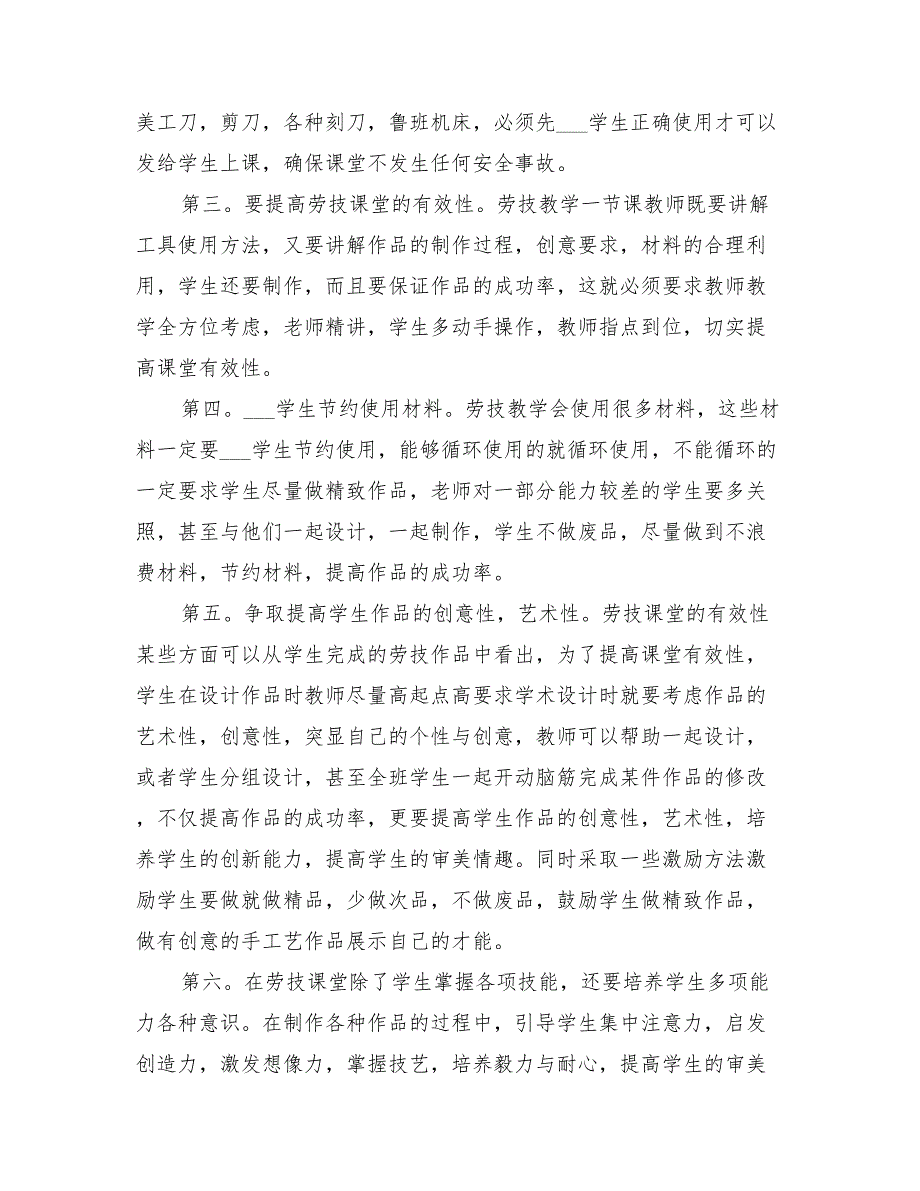 美工刀，剪刀，各种刻刀，鲁班机床，必须先___学生正确使用才可以
发给学生上课，确保课堂不发生任何安全事故。
第三。要提高劳技课堂的有效性。劳技教学一节课教师既要讲解
工具使用方法，又要讲解作品的制作过程，创意要求，材料的合理利
用，学生还要制作，而且要保证作品的成功率，这就必须要求教师教
学全方位考虑，老师精讲，学生多动手操作，教师指点到位，切实提
高课堂有效性。
第四。___学生节约使用材料。劳技教学会使用很多材料，这些材
料一定要___学生节约使用，能够循环使用的就循环使用，不能循环的
一定要求学生尽量做精致作品，老师对一部分能力较差的学生要多关
照，甚至与他们一起设计，一起制作，学生不做废品，尽量做到不浪
费材料，节约材料，提高作品的成功率。
第五。争取提高学生作品的创意性，艺术性。劳技课堂的有效性
某些方面可以从学生完成的劳技作品中看出，为了提高课堂有效性，
学生在设计作品时教师尽量高起点高要求学术设计时就要考虑作品的
艺术性，创意性，突显自己的个性与创意，教师可以帮助一起设计，
或者学生分组设计，甚至全班学生一起开动脑筋完成某件作品的修改
，不仅提高作品的成功率，更要提高学生作品的创意性，艺术性，培
养学生的创新能力，提高学生的审美情趣。同时采取一些激励方法激
励学生要做就做精品，少做次品，不做废品，鼓励学生做精致作品，
做有创意的手工艺作品展示自己的才能。
第六。在劳技课堂除了学生掌握各项技能，还要培养学生多项能
力各种意识。在制作各种作品的过程中，引导学生集中注意力，启发
创造力，激发想像力，掌握技艺，培养毅力与耐心，提高学生的审美